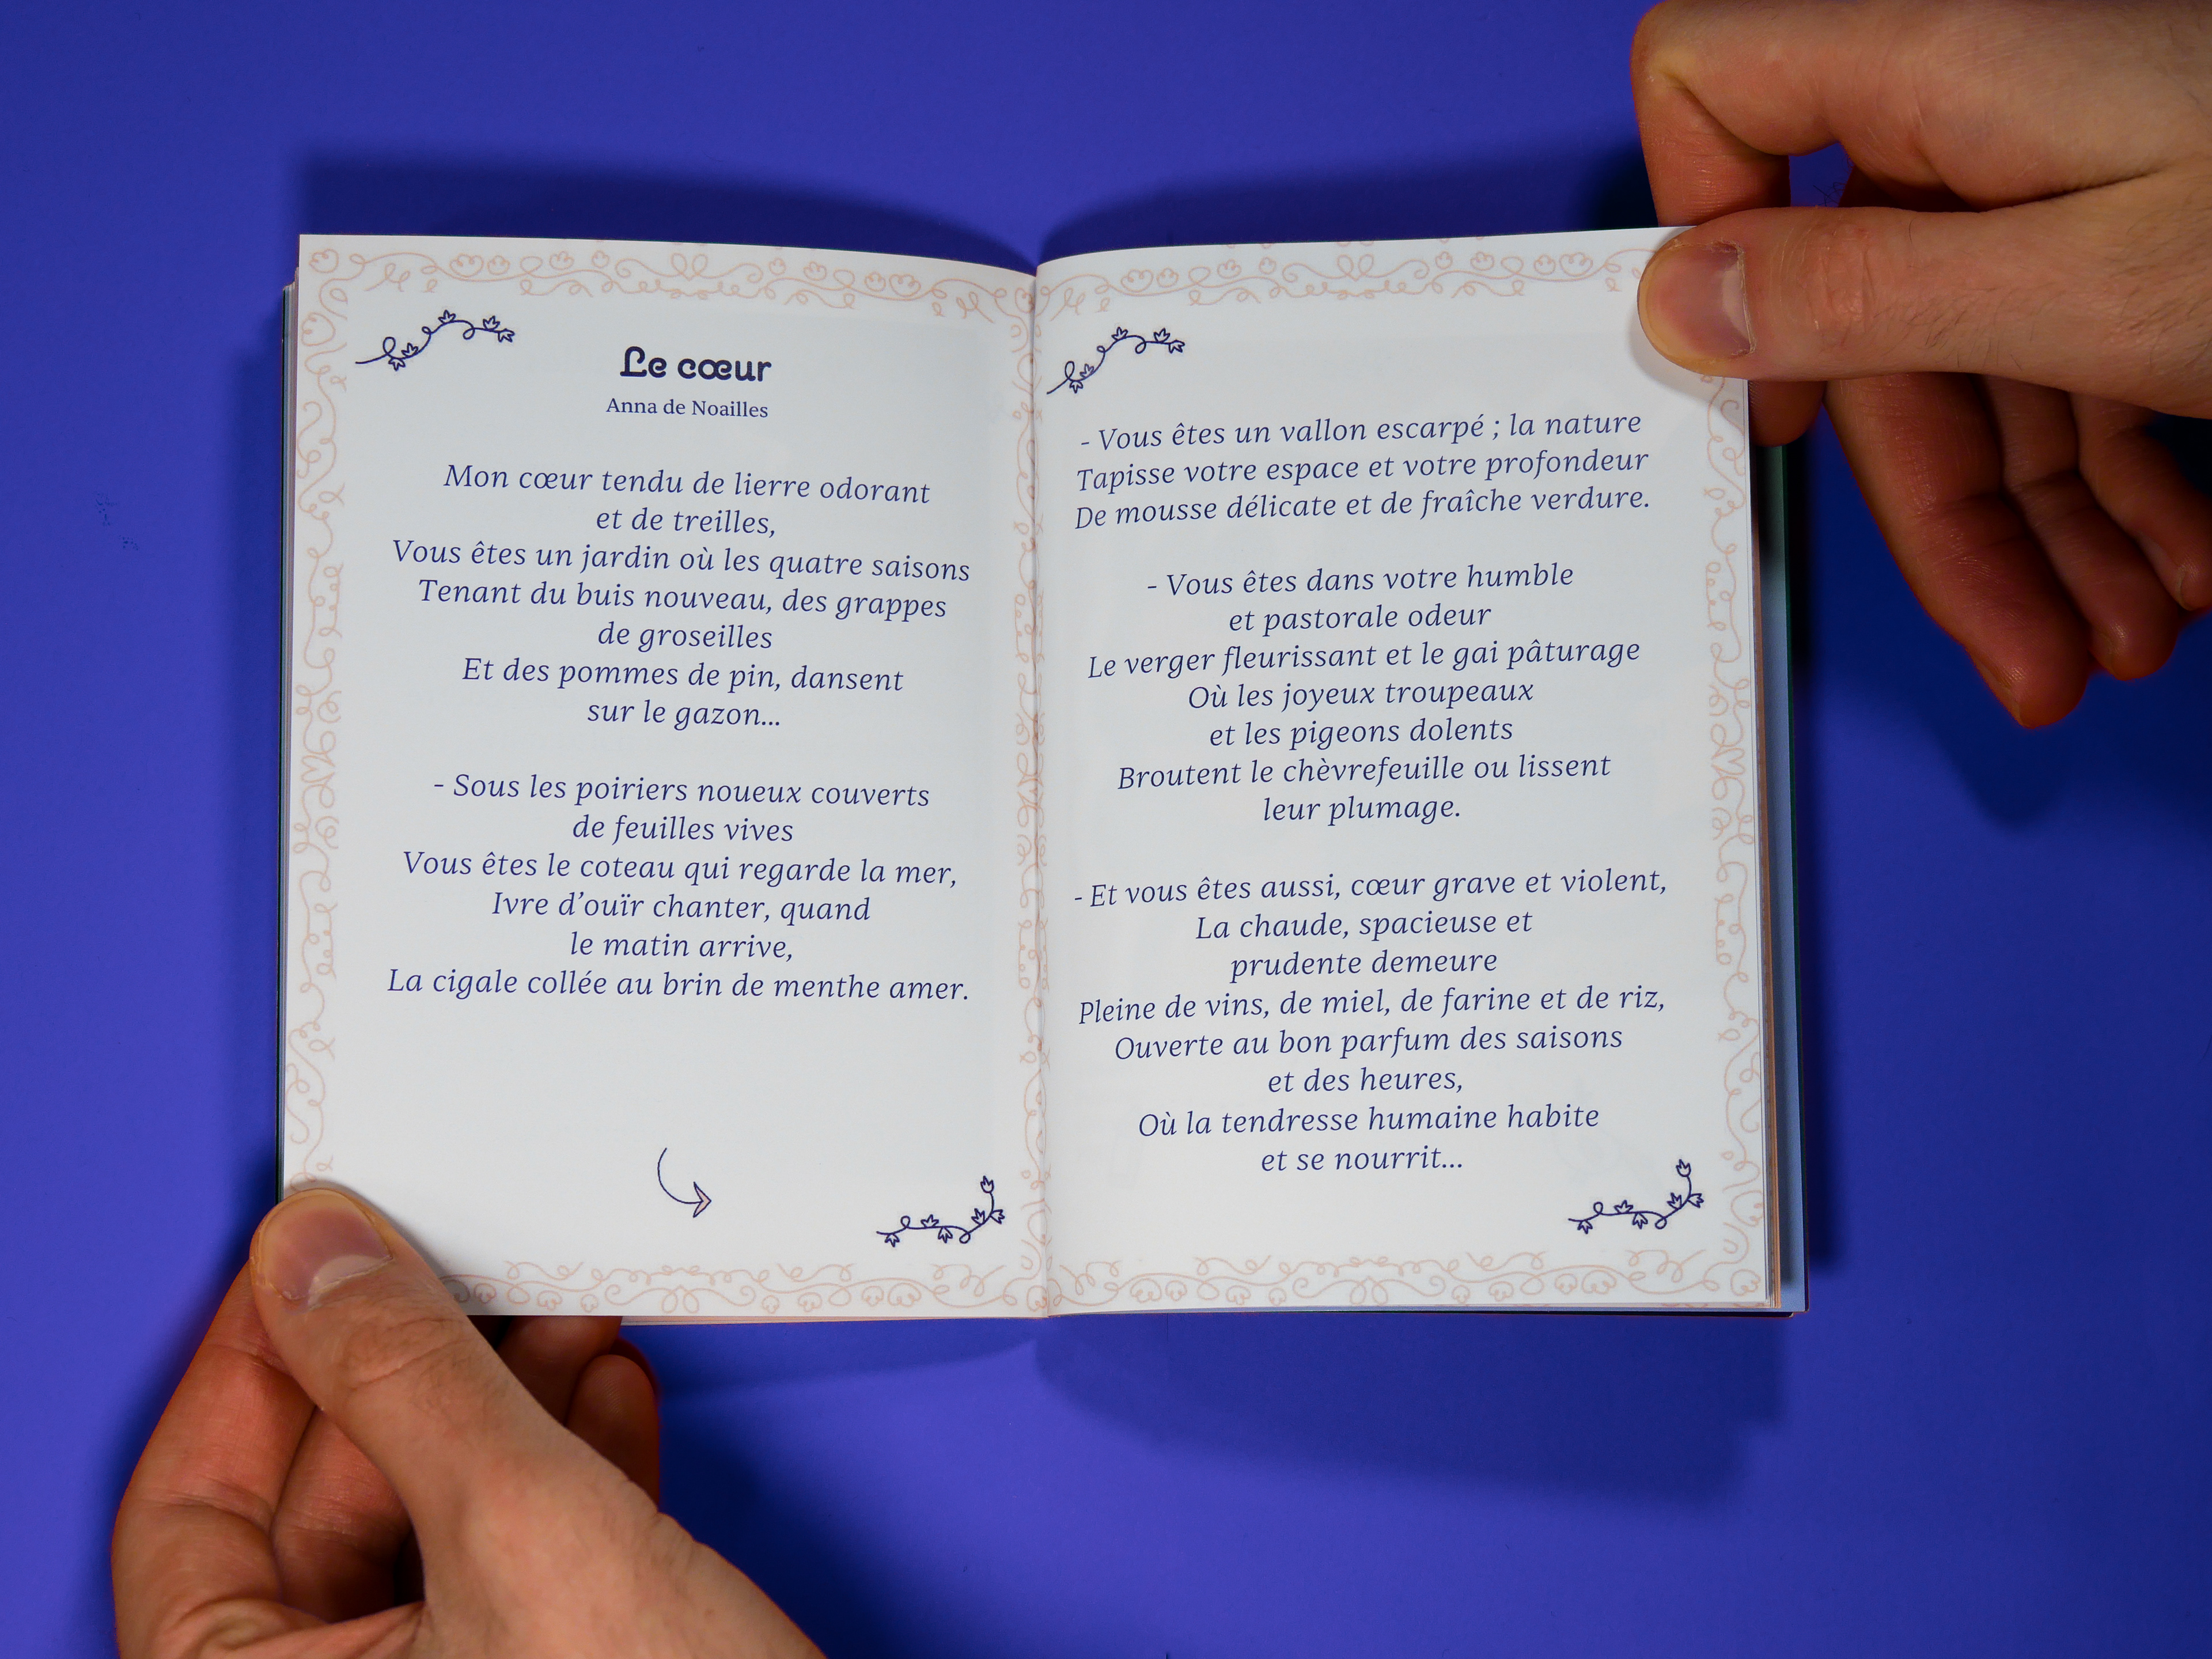 Le cœur
Anna de Noailles
Mon cœur tendu de lierre odorant
et de treilles,
Vous êtes un jardin où les quatre saisons
Tenant du buis nouveau, des grappes
de groseilles
Et des pommes de pin, dansent
sur le gazon...
- Sous les poiriers noueux couverts
de feuilles vives
Vous êtes le coteau qui regarde la mer,
Ivre d’ouïr chanter, quand
le matin arrive,
La cigale collée au brin de menthe amer.
- Vous êtes un vallon escarpé ; la nature
Tapisse votre espace et votre profondeur
De mousse délicate et de fraîche verdure.
- Vous êtes dans votre humble
et pastorale odeur
Le verger fleurissant et le gai pâturage
Où les joyeux troupeaux
et les pigeons dolents
Broutent le chèvrefeuille ou lissent
leur plumage.
- Et vous êtes aussi, cœur grave et violent,
La chaude, spacieuse et
prudente demeure
Pleine de vins, de miel, de farine et de riz,
Ouverte au bon parfum des saisons
et des heures,
Où la tendresse humaine habite
et se nourrit...